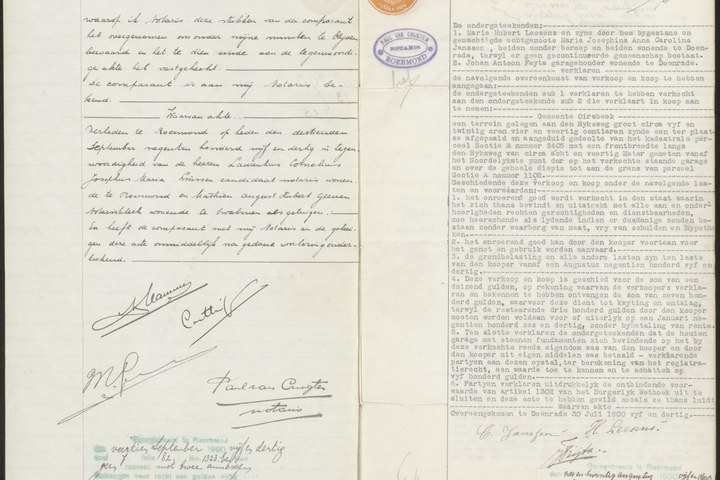 waarop ik Notaris deze stukken van de comparant
heb overgenomen om onder mijne minuten te blijven
bewaard en het te dien einde aan de tegenwoordi-
ge akte heb vastgehecht.
De comparant is aan mij Notaris be-
kend.
Waarvan akte.
Verleden te Roermond op heden den dertienden
September negentien honderd vijf en dertig in tegen-
woordigheid van de heeren
Josephus Maria candidaat notaris wonen-
de te Roermond en Mathieu August Hubert Geenen
notarisklerk wonende te Swalmen als getuigen.
En heeft de comparant met mij Notaris en de getui-
gen deze akte onmiddellijk na gedane voorlezing onder-
teekend.
notaris
Geregistreerd te Roermond
den veertien September vijf en dertig
PAUL VAN CRUGTEN
NOTARIS
ROERMOND
De ondergeteekenden:
1. Marie Hubert Leesens en zyne door hem bygestane en
gemachtigde echtgenoote Maria Josephina Anna Carolina
Janssen, beiden zonder beroep en beiden wonende te Doen-
rade, terwyl er geen gecontinueerde gemeenschap bestaat.
2. Johan Antoon Feyts garagehouder wonende te Doenrade.
verklaren
de navolgende overeenkomst van verkoop en koop te hebben
aangegaan:
de ondergeteekenden sub 1 verklaren te hebben verkocht
aan den ondergeteekende sub 2 die verklaart in koop aan
te nemen:
Gemeente Oirsbeek
een terrein gelegen aan den Ryksweg groot circa vyf en
twintig aren vier en veertig centiaren zynde een ter plaat-
se afgepaald en aangeduid gedeelte van het kadastrale per-
ceel Sectie A nommer 2405 met een frontbreedte langs
den Ryksweg van circa acht en veertig Meter gemeten vanaf
het Noordelykste punt der op het verkochte staande garage
en over de geheele diepte tot aan de grens van perceel
Sectie A nommer 1102.
Geschiedende deze verkoop en koop onder de navolgende las-
ten en voorwaarden:
1. het onroerend goed wordt verkocht in den staat waarin
het zich thans bevindt en uitstrekt met alle aan en onder-
hoorigheden rechten gerechtigheden en dienstbaarheden,
zoo heerschende als lydende indien er dusdanige zouden be-
staan zonder waarborg van maat, vry van schulden en hypothe-
ken.
2. het onroerend goed kan door den kooper voortaan voor
het genot en gebruik worden aanvaard.
3. de grondbelasting en alle andere lasten zyn ten laste
van den kooper vanaf een Augustus negentien honderd vyf en
dertig.
4. Deze verkoop en koop is geschied voor de som van een
duizend gulden, op rekening waarvan de verkoopers verkla-
ren en bekennen te hebben ontvangen de som van zeven hon-
derd gulden, waarvoor deze dient tot kwyting en ontslag,
terwyl de resteerende drie honderd gulden door den kooper
moeten worden voldaan voor of uiterlyk op een Januari ne-
gentien honderd zes en dertig, zonder bybetaling van rente.
5. Ten slotte verklaren de ondergeteekenden dat de houten
garage met steenen fundamenten zich bevindende op het by
deze verkochte reeds eigendom was van den kooper en door
den kooper uit eigen middelen was betaald - verklarende
partyen aan dezen opstal, ter berekening van het registra-
tierecht, een waarde toe te kennen en te schatten op
vyf honderd gulden.
6. Partyen verklaren uitdrukkelyk de ontbindende voor-
waarde van artikel 1302 van het Burgerlyk Wetboek uit te
sluiten en deze acte te hebben gewild zooals ze thans luidt
Waarvan akte
Overeengekomen te Doenrade 30 Juli 1900 vyf en dertig.
C. Janssen
Geregistreerd te Roermond